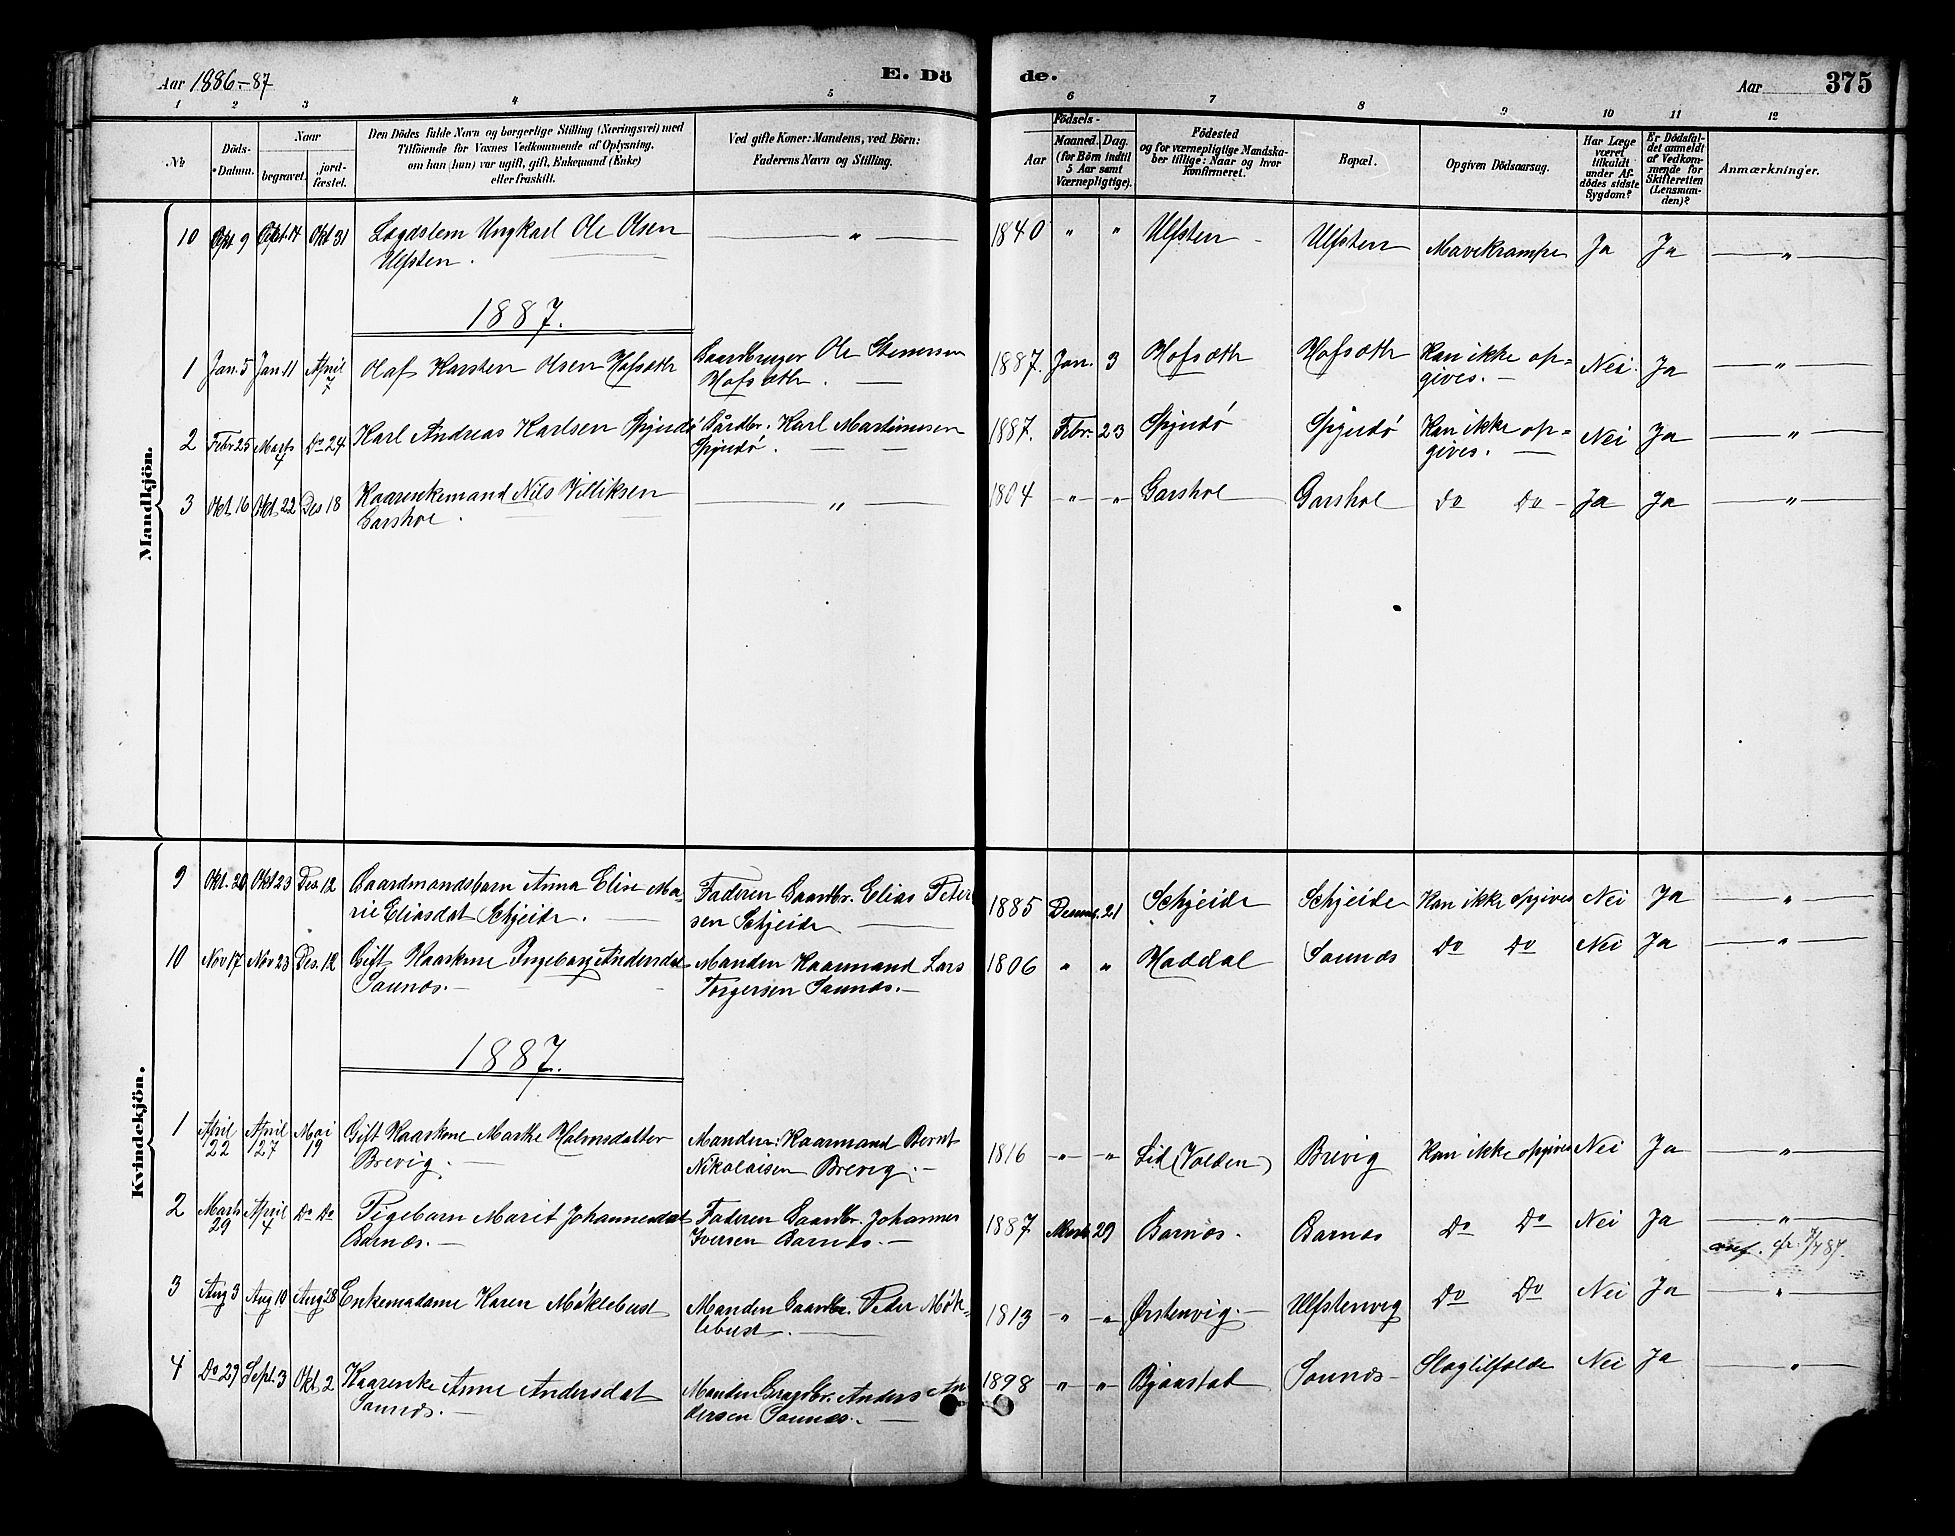 Aar 1886.-87
E. Dö
de.
Aar
375
1 2 3 4 5 6 7 8 9 10 11 12
No
Döds-
Datum.
Naar
begravet.
jord-
fæstet.
Den Dödes fulde Navn og borgerlige Stilling (Næringsvei) med
Tilföiende for Voxnes Vedkommende af Oplysning,
om han (hun) var ugift, gift, Enkemand (Enke)
eller fraskilt.
Ved gifte Koner: Mandens, ved Börn:
Faderens Navn og Stilling.
Födsels-
Aar
Maaned. Dag.
(for Börn indtil
5 Aar samt
Værnepligtige).
Födested
og for værnepligtige Mandska-
ber tillige: Naar og hvor
konfirmeret.
Bopæl.
Opgiven Dödsaarsag.
Har Læge
været
tilkaldt
under Af-
dödes sidste
Sygdom?
Er Dödsfal-
det anmeldt
af Vedkom-
mende for
Skifteretten
(Lensman-
den)?
Anmærkninger.
Mandkjön.
10 Sept 9 Sept. 14 Okt 31 Lægdslem Ungkarl Ole Olsen
Ulfsten.
" 1840 " " Ulfsten Ulfsten Mavekrampe Ja Ja "
1887.
1 Jan. 5 Jan 11 April 7 Olaf Karsten Olsen Hofsæth
Gaardbruger Ole Stenersen
Hofsæth.
1887. Jan. 3 Hofsæth Hofsæth Kan ikke op=
gives. Nei. Ja "
2 Febr 25 Marts 4 Do 24 Karl Andreas Karlsen
Gårdbr. Karl Martinusen
1887. Febr. 23 Kan ikke op=
gives. Nei Ja "
3 Okt. 16 Okt. 22 Des 18 Kaarenkemand Nils Villiksen
Garshol.
" 1804 " " Garshol Garshol Do Do Ja Ja "
Kvindekjön.
9 Okt. 20 Okt 23 Des. 12 Gaardmandsbarn Anna Eline Ma-
rie Eliasdat Schjeide.
Faderen Gaardbr. Elias Peter
sen Schjeide
1885 21 Schjeide Schjeide Kan ikke opgives Nei Ja "
10 Nov 17 Nov 23 Des. 12 Gift Kaarkone Ingeborg Andersdat
Saunæs.
Manden Kaarmand Lars
Torgersen Saunæs.
1806 " " Haddal Saunæs Do Do Nei Ja "
1887.
1 April 22 April 27 Mai 19 Gift Kaarkone Marthe Holmsdatter
Brevig.
Manden: Kaarmand Bernt
Nikolaisen Brevig.
1816 " " Lid (Volden) Brevig Kan ikke opgives Nei Ja "
2 Marts 29 April 4 Do Do Pigebarn Marit Johannesdat
Barnæs.
Faderen Gaardbr. Johannes
Iversen Barnæs.
1887 Marts 29 Barnæs. Barnæs Do Do Nei Ja "
cfr. 7/7 87.
3 Aug 3 Aug 10 Aug 28 Enkemadame Karen Möklebust
Manden Gaardbr. Peder Mök-
lebust.
1813 " " Ørstenvig. Ulfstenvig Do Do Nei Ja "
4 Do 29 Sept. 3 Okt 2 Kaarenke Anne Andersdat
Saunæs.
Manden Anders An
dersen Saunæs.
1898 " " Bjaastad Saunæs Slagtilfælde Nei Ja "